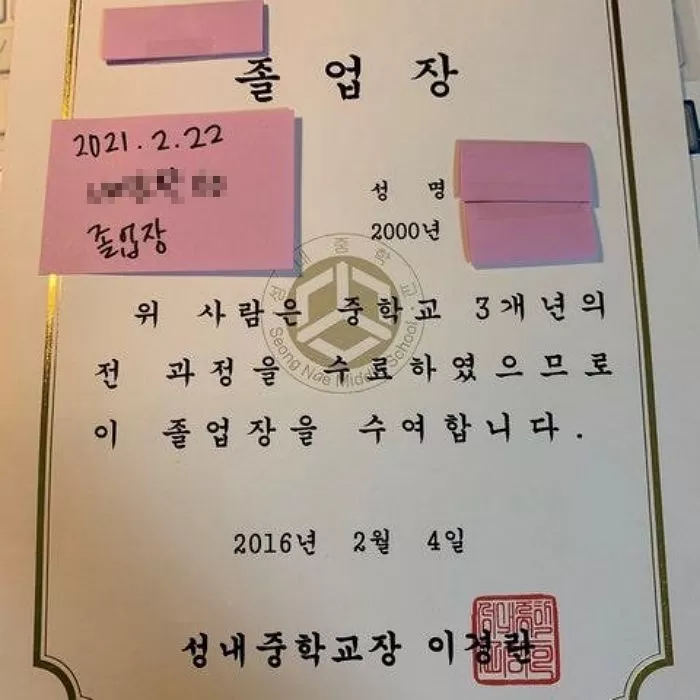 졸업장
2021. 2. 22
졸업장
성 명
2000년
성내중학교
Seong Nae Middle School
위 사람은 중학교 3개년의
전 과정을 수료하였으므로
이 졸업장을 수여합니다.
2016년 2월 4일
성내중학교장 이경란